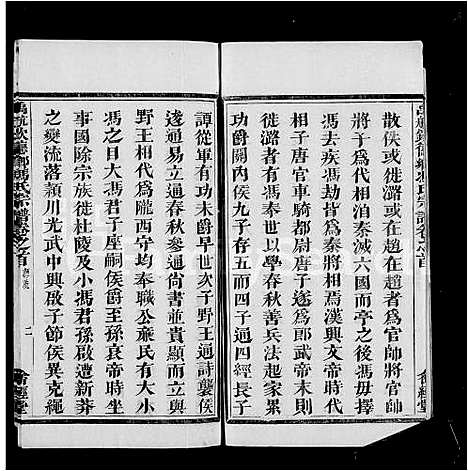 散佚或徙潞或在趙在趙者爲官帥將官帥
將子爲代相泊秦滅六國而亭之後馮毋擇
馮去疾馮劫皆爲秦將相焉漢興文帝時代
相馮唐官車騎都尉唐子遂爲郎武帝末則
徙潞者有奉世以學春秋善兵法起家累
功爵關內侯九子存五而四子通四經長子
譚從軍有功未爵早故次子野王通詩襲侯
逡通易立通春秋參通尚書並貴顯而立與
野王相代爲隴西守均奉職公亷民有大小
馮之目大馮君子座嗣侯爵至孫哀帝時坐
事國除宗族徙杜陵及小馮君孫敞遭新莽
之變流落潁川光武中興啟子節侯異克繩
二